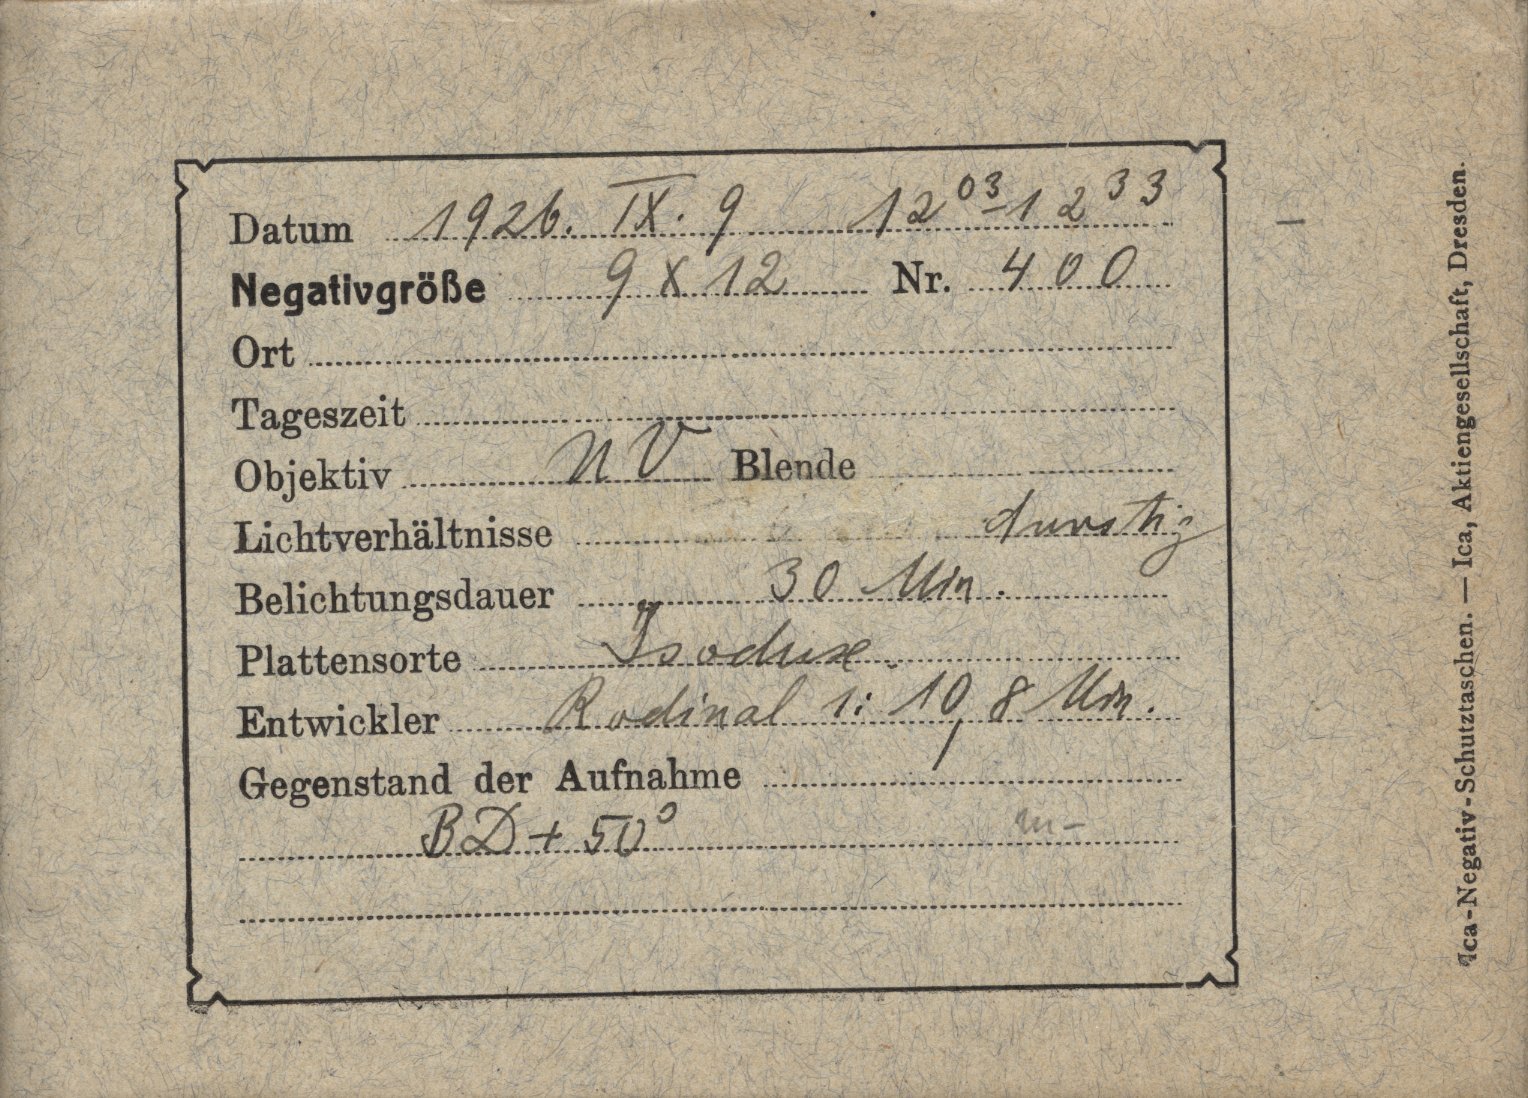 Datum 1926. IX. 9 12 03 - 12 33
Negativgröße 9 X 12 Nr. 400
Ort
Tageszeit
Objektiv UV Blende
Lichtverhältnisse dunstig
Belichtungsdauer 30 Min.
Plattensorte Isodux.
Entwickler Rodinal 1:10, 8 Min.
Gegenstand der Aufnahme
BD + 50°
Ica-Negativ-Schutztaschen. — Ica, Aktiengesellschaft, Dresden.